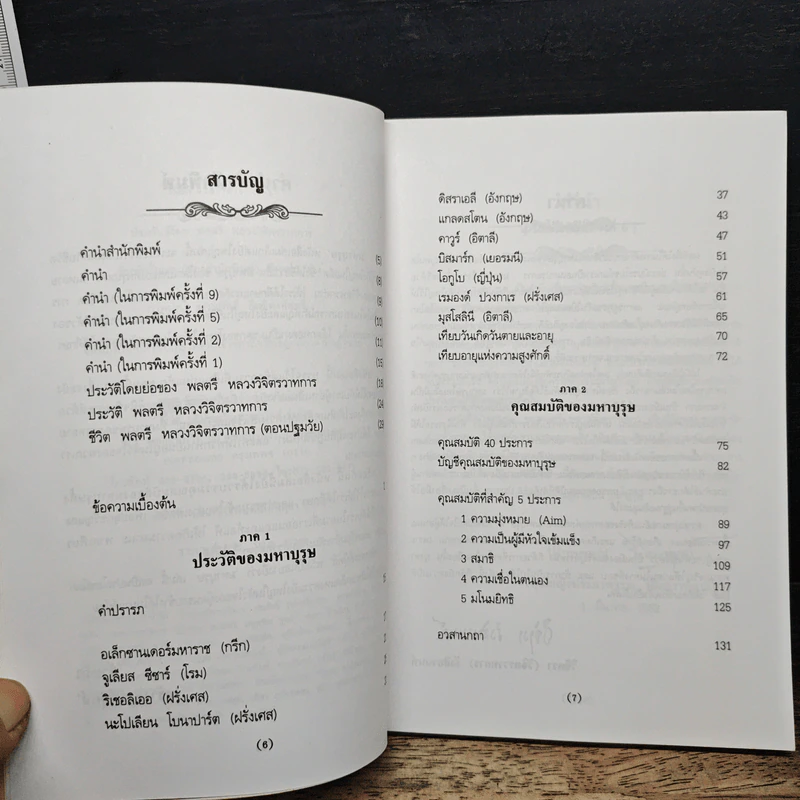 สารบัญ
คำนำสำนักพิมพ์ (5)
คำนำ (8)
คำนำ (ในการพิมพ์ครั้งที่ 9) (9)
คำนำ (ในการพิมพ์ครั้งที่ 5) (10)
คำนำ (ในการพิมพ์ครั้งที่ 2) (11)
คำนำ (ในการพิมพ์ครั้งที่ 1) (15)
ประวัติโดยย่อของ พลตรี หลวงวิจิตรวาทการ (18
ประวัติ พลตรี หลวงวิจิตรวาทการ (24
ชีวิต พลตรี หลวงวิจิตรวาทการ (ตอนปฐมวัย) (29
ข้อความเบื้องต้น
ภาค 1
ประวัติของมหาบุรุษ
คำปรารภ
อเล็กซานเดอร์มหาราช (กรีก)
จูเลียส ซีซาร์ (โรม)
ริเชอลิเออ (ฝรั่งเศส)
นะโปเลียน โบนาปาร์ต (ฝรั่งเศส)
(6)
ดิสราเอลี (อังกฤษ) 37
แกลดสโตน (อังกฤษ) 43
คาวูร์ (อิตาลี) 47
บิสมาร์ก (เยอรมนี) 51
โอกูโบ (ญี่ปุ่น) 57
เรมองต์ ปวงกาเร (ฝรั่งเศส) 61
มุสโสลินี (อิตาลี) 65
เทียบวันเกิดวันตายและอายุ 70
เทียบอายุแห่งความสูงศักดิ์ 72
ภาค 2
คุณสมบัติของมหาบุรุษ
คุณสมบัติ 40 ประการ 75
บัญชีคุณสมบัติของมหาบุรุษ 82
คุณสมบัติที่สำคัญ 5 ประการ
1 ความมุ่งหมาย (Aim) 89
2 ความเป็นผู้มีหัวใจเข้มแข็ง 97
3 สมาธิ 109
4 ความเชื่อในตนเอง 117
5 มโนมยิทธิ 125
อวสานกถา 131
(7)